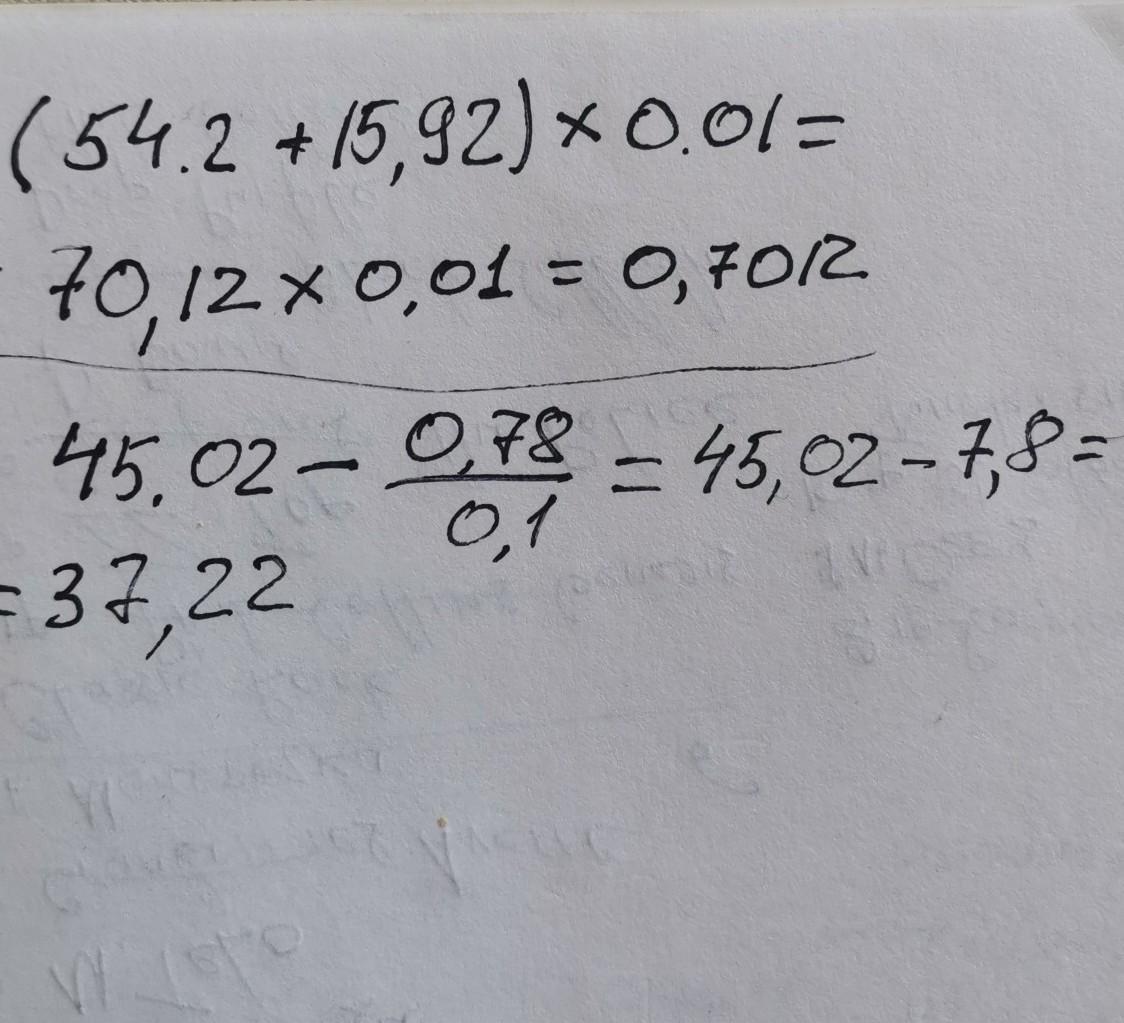 (54.2 + 15,92) × 0.01 =
70,12 × 0,01 = 0,7012
45.02 - 0,78/0,1 = 45,02 - 7,8 =
= 37,22